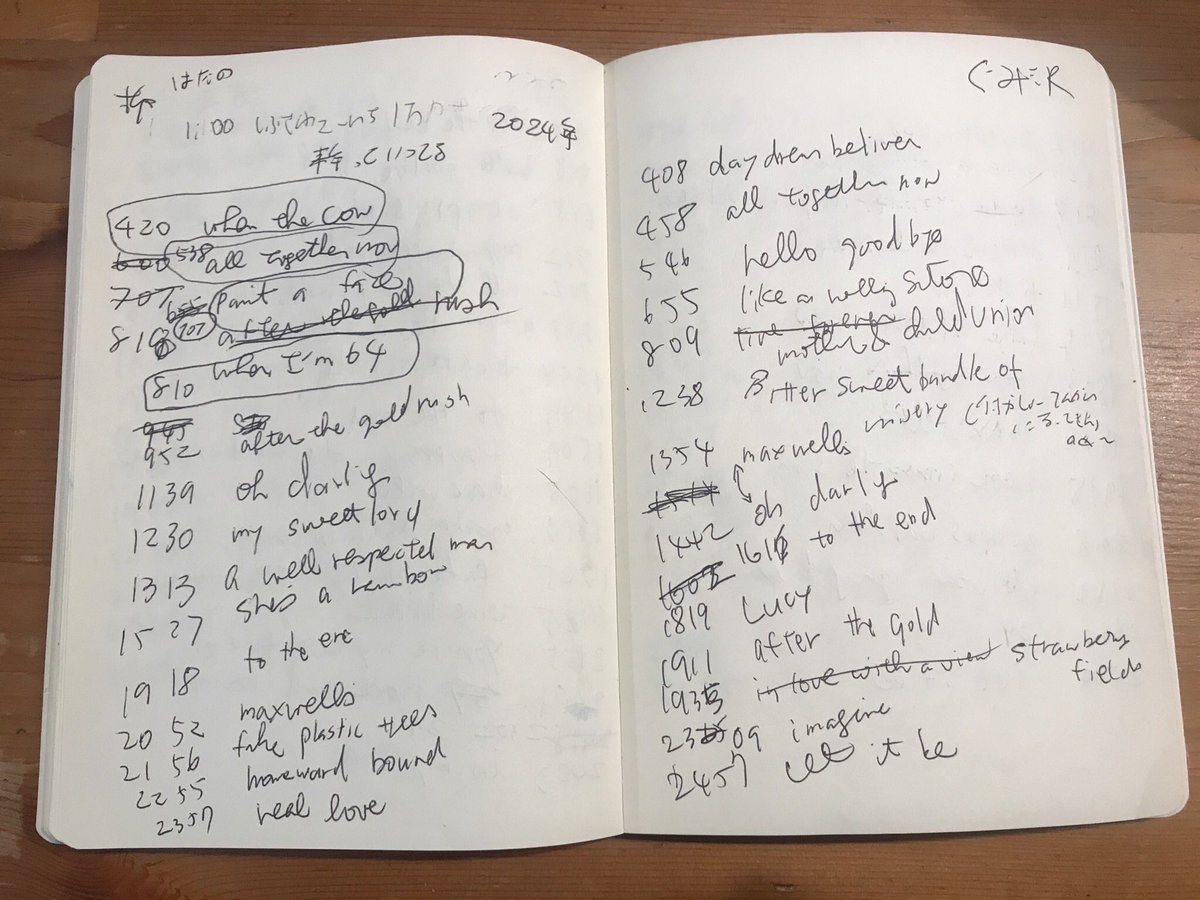 はたの
1:00
2024年
420 when the cow
538 all together now
707 paint a face
818 after the gold rush
810 when I'm 64
945
952 after the gold rush
1139 oh darlig
1230 my sweet lord
1313 a well respected man
she's a rainbow
1527
to the end
1918
maxwells
2052 fake plastic trees
2156 homeward bound
2255
2357 real love
408 day dream beliver
458 all together now
546 hello goodbye
655 like a rolling stone
809 mother & child union
1238 Bitter sweet bundle of
misery
1354 maxwells
oh darlig
1442
1616 to the end
1819 Lucy
1911 after the gold
1935 in love with a view strawbery
fields
2309 imagine
2457 let it be